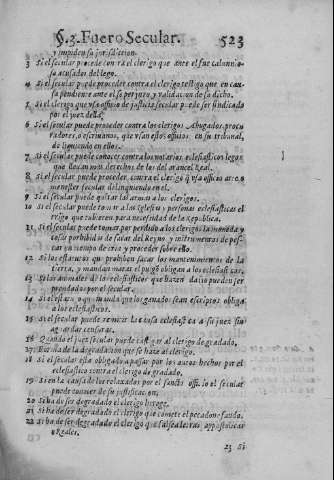 §.2. Fuero Secular. 523
y impiden su jurisdicion.
3 Si el secular procede contra el clerigo que ante el fue calumnio
sa acusador del lego.
4 Si el secular puede proceder contra el clerigo testigo que en cau
sa pendiente ante el se perjuro, y validacion de su dicho.
5 Si el clerigo que usa officio de justicia secular puede ser sindicado
por el juez della.
6 Si el secular puede proceder contra los clerigos Abugados, procu
radores, o escrivanos, que usan estos officios en su tribunal,
delinquiendo en ellos.
7 Si el secular puede conocer contra los notarios eclesiasticos legos
que llevan mas derechos de los del aranzel Real.
8 Si el secular puede proceder, contra el clerigo q̃ usa officio arte o
menester secular delinquiendo en el.
9 Si el secular puede quitar las armas a los clerigos.
10 Si el secular puede tomar a las iglesias y personas eclesiasticas el
trigo que tubieren para necesidad de la Republica.
11 Si el secular puede tomar por perdido a los clerigos la moneda y
cosas porhibidas de sacar del Reyno, y instrumentos de pes-
car en tiempo de cria y proceder sobre ello.
12 Si los estatutos que prohiben sacar los mantenimientos de la
tierra, y mandan matar el pulgõ obligan a los eclesiasticos.
13 Si los animales de los eclesiasticos que hazen daño pueden ser
prendados por el secular.
14 Si el estatuto que manda que los ganados sean escriptos obliga
a los eclesiasticos.
15 Si el secular puede remitir la causa eclesiastica a su juez sin
aguardar censuras.
16 Quando el juez secular puede castigar al clerigo degradado,
17 Forma de la degradacion que se haze al clerigo.
18 Si el secular esta obligado a pasar por los autos hechos por el
eclesiastico contra el clerigo degradado.
19 Si en la causa de los relaxados por el sancto officio el secular
puede conocer de su justificacion,
20 Si ha de ser degradado el clerigo herege.
21 Si ha de ser degradado el clerigo que comete el pecado nefando.
22 Si ha de ser degradado el clerigo que falsea letras apostolicas
o Reales.
23 Si